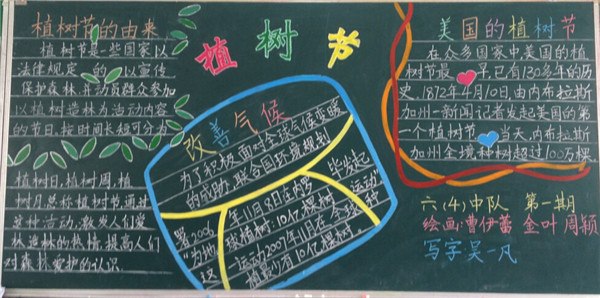 植树节的由来
植树节是一些国家以
法律规定的以宣传
保护森林并动员群众参加
以植树造林为活动内容
的节日.按时间长短可分为
植树日,植树周,植
树月.总称植树节通过
这种活动,激发人们爱
林造林的热情,提高人们
对森林爱护的认识.
植树节
改善气候
为了积极面对全球气候变暖
的威胁,联合国环境规划
署2006年11月8日在内罗毕发起
"为地球植树:10亿棵树运动"
议 运动2007年11月在全球
植至少有10亿棵树.
美国的植树节
在众多国家中美国的植
树节最早,已有130多年的历
史.1872年4月10日,由内布拉斯
加州一新闻记者发起美国的第
一个植树节.当天,内布拉斯
加州全境种树超过100万棵.
六(4)中队 第一期
绘画:曹伊蕾 金叶 周颖
写字吴一凡